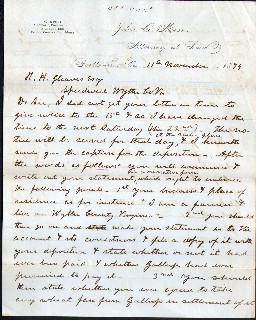 John C. 
Attorney at Law
11th November 1879
R. H. Gleaves Esq
Speedwell Wythe Co Va.
Dear Sir, I did not get your letter in time to
give notice to the 15th & so I have changed the
time to next Saturday (the 22nd). The no-
tice will be served for that day, & I herewith
send you the caption for the deposition. After
the words as follows you will commence &
write out your statement which ought to embrace
the following points. 1st your business & place of
residence as for instance: I am a farmer &
live in Wythe County Virginia. 2nd you should
then go on and make your statement as to the
account & its correctness & file a copy of it with
your deposition & state whether or not it had
ever been paid & whether Gallup had ever
promised to pay it. 3rd you should
then state whether you ever agree to take
any what from Gallup in settlement of it